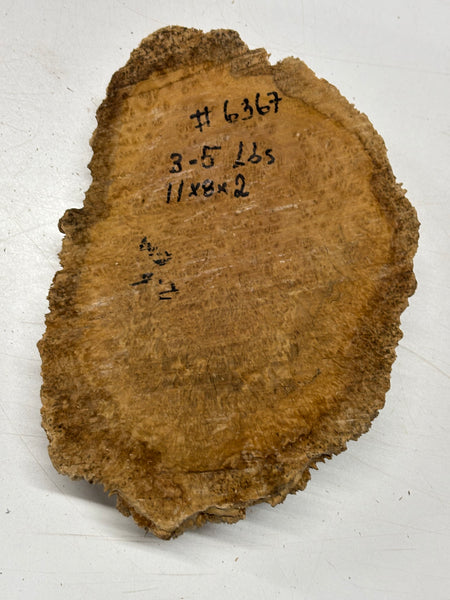 # 6367
3-5 Lbs
11x8x2